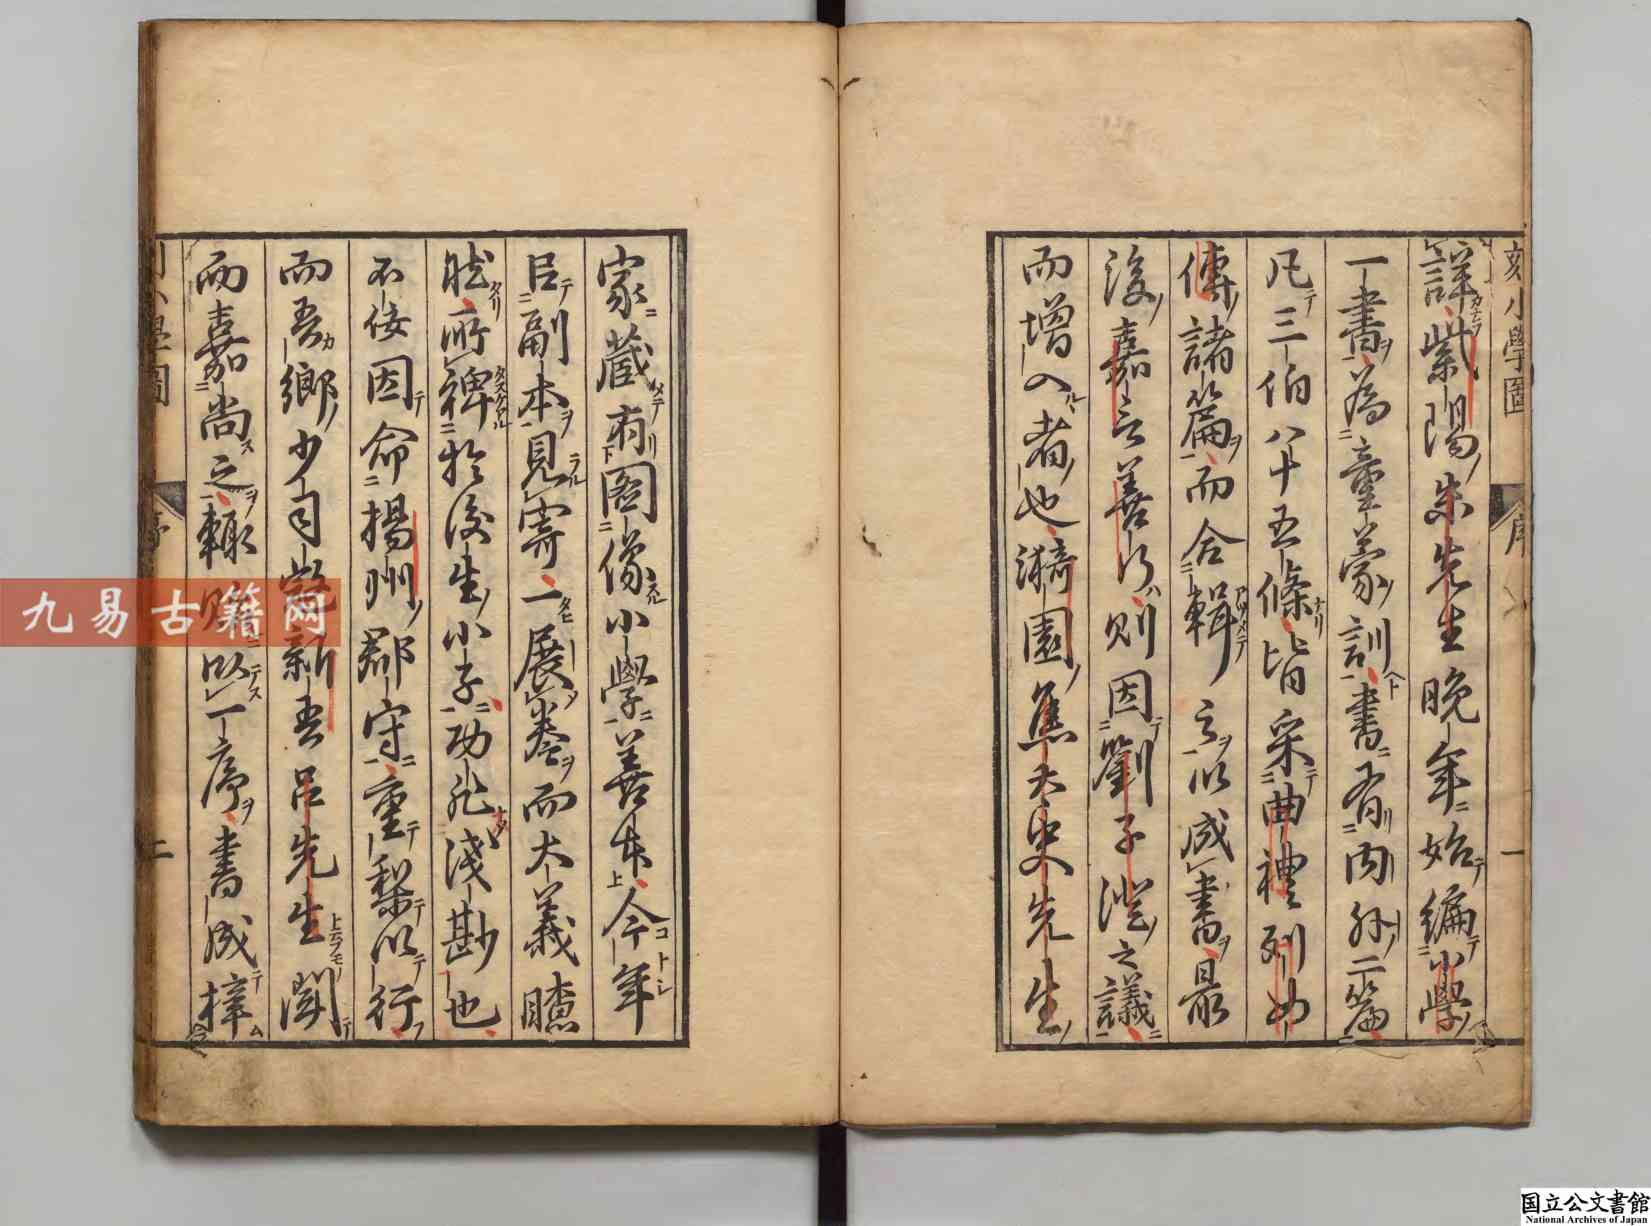 刻小學圖
序
一
詳紫陽朱先生晚年始編小學
一書為童蒙訓書有內外二篇
凡三伯八十五條皆采曲禮列女
傳諸篇而合輯之以成書最
後嘉言善行則因劉子澄之議
而增入者也漪園焦太史先生
家藏有圖像小學善本今年
巨副本見寄一展卷而大義瞭
然所裨於後生小子功非淺尠也
不佞因命揚州郡守重梨以行
而吾鄉少司寇新吾呂先生聞
而嘉尚之輒賜以一序書成梓
小學圖
二
九易古籍网
国立公文書館
National Archives of Japan